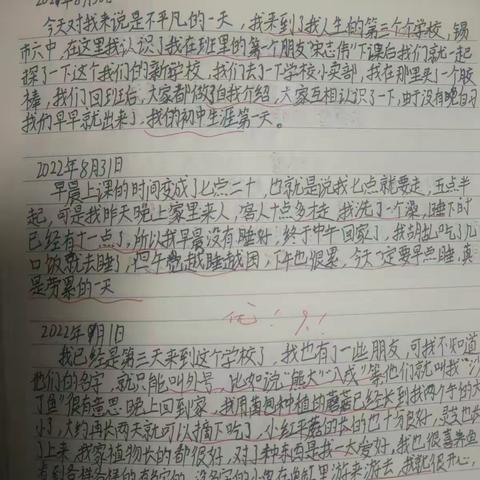 今天对我来说是不平凡的一天，我来到了我人生的第三个学校，锡
市六中，在这里我认识了我在班里的第一个朋友"宋志伟"下课后我们就一起
探了一下这个我们的新学校，我们去了一下学校小卖部，我在那里买了个胶
棒，我们回班后，大家都做了自我介绍，大家互相认识了一下，由于没有晚自习
我们早早就出来了，我的初中生涯第一天。
2022年8月31日
早晨上课的时间变成了七点二十，也就是说我七点就要走，五点半
起，可是我昨天晚上家里来人，客人十点多才走，我洗了个澡，睡下时
已经有十一点了，所以我早晨没有睡好，终于中午回家了，我胡乱吃了几
口饭就去睡了，但午觉越睡越困，下午也很累，今天一定要早点睡，真
是劳累的一天
优！
2022年9月1日
我已经是第三天来到这个学校了，我也有了一些朋友，可我不知道
他们的名字，就只能叫外号，比如说"熊大""八戒"等他们就叫我"沙
丁鱼"很有意思，晚上回到家，我用菌包种植的蘑菇已经长到我两个手的大
小了，大约再长两天就可以摘下吃了，小红平菇的长的也十分良好，灵芝也长
了上来，我家植物长的都很好，对了种东西是我一大爱好，我也很喜养鱼
看到各种各样的 游来游去，我就很开心，